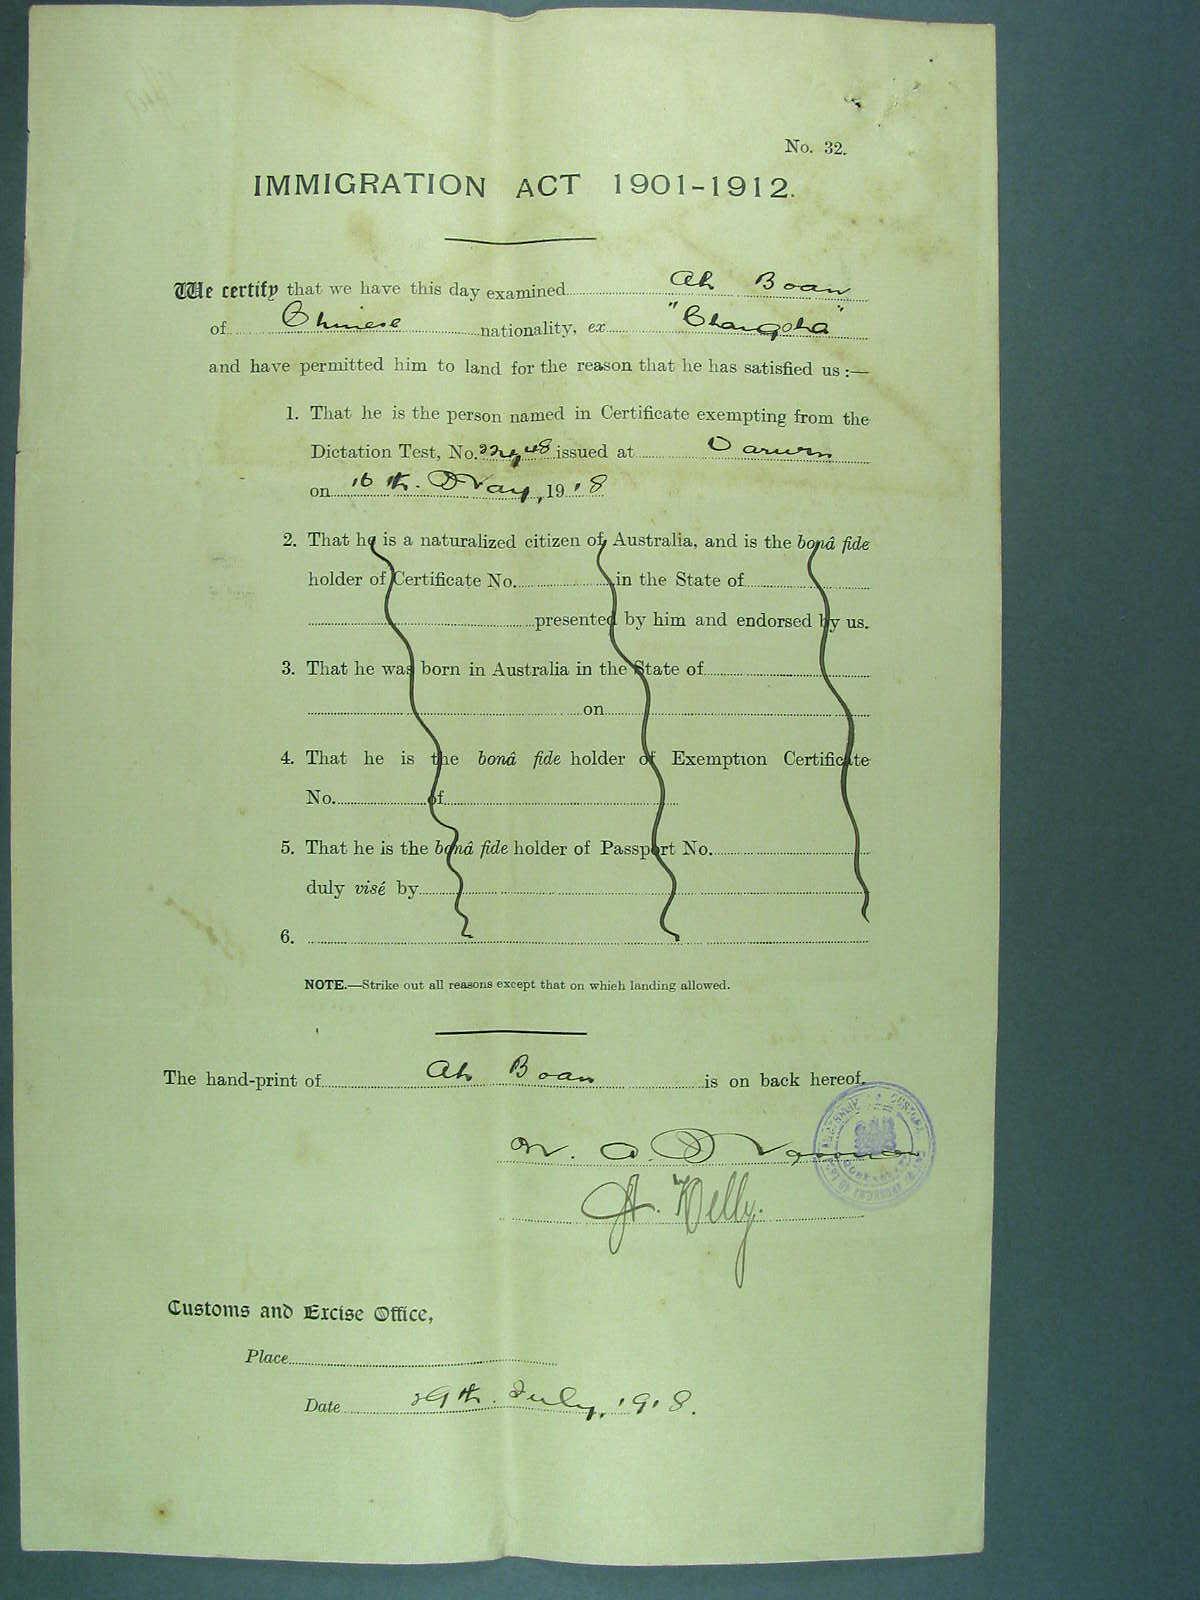 No. 32.
IMMIGRATION ACT 1901-1912.
We certify that we have this day examined Ah Boan
of Chinese nationality, ex "Changsha"
and have permitted him to land for the reason that he has satisfied us :—
1. That he is the person named in Certificate exempting from the
Dictation Test, No. issued at Darwin
on 16th. May, 1918
2. That he is a naturalized citizen of Australia, and is the bonâ fide
holder of Certificate No. in the State of
presented by him and endorsed by us.
3. That he was born in Australia in the State of
on
4. That he is the bonâ fide holder of Exemption Certificate
No. of
5. That he is the bonâ fide holder of Passport No.
duly visé by
6.
NOTE.—Strike out all reasons except that on which landing allowed.
The hand-print of Ah Boan is on back hereof.
W. A.
A. Kelly.
Customs and Excise Office,
Place
Date 29th. July, 1918.